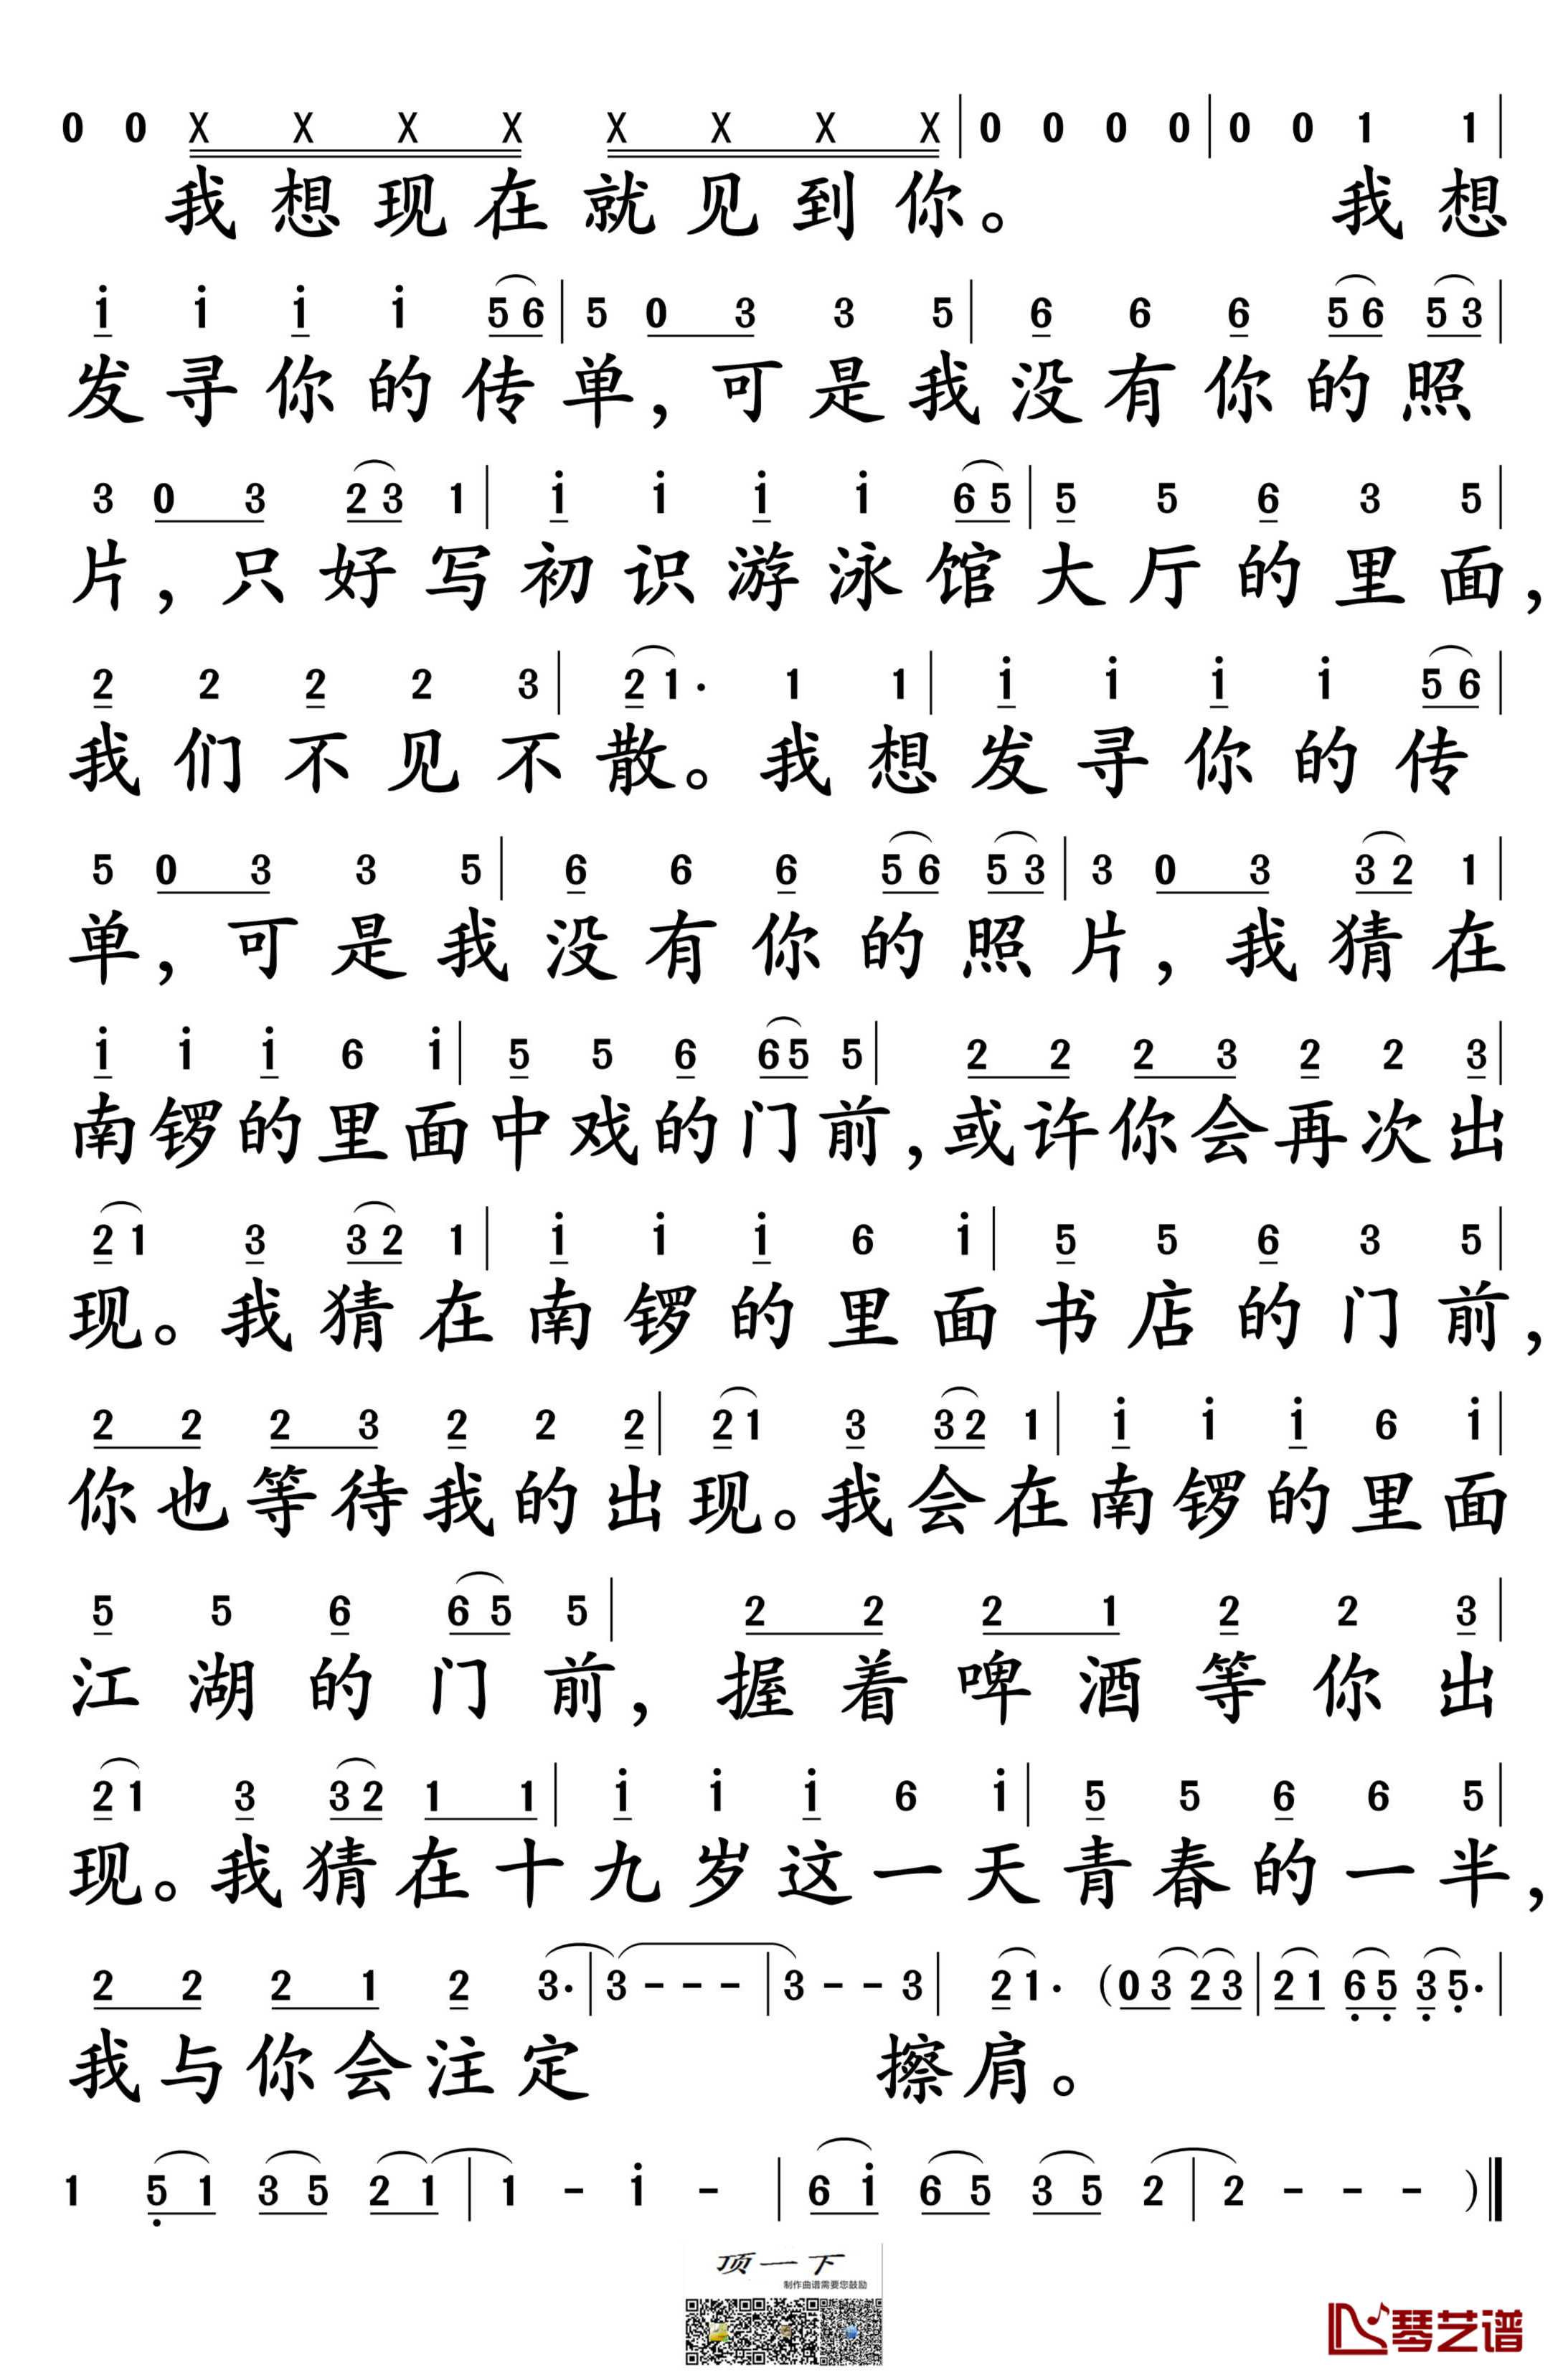 0 0 X X X X X X X X | 0 0 0 0 | 0 0 1 1 |
我想现在就见到你。 我想
i i i i 56 | 5 0 3 3 5 | 6 6 6 56 53 |
发寻你的传单，可是我没有你的照
3 0 3 23 1 | i i i i 65 | 5 5 6 3 5 |
片，只好写初识游泳馆大厅的里面，
2 2 2 2 3 | 21· 1 1 | i i i i 56 |
我们不见不散。我想发寻你的传
5 0 3 3 5 | 6 6 6 56 53 | 3 0 3 32 1 |
单，可是我没有你的照片，我猜在
i i i 6 i | 5 5 6 65 5 | 2 2 2 3 2 2 3 |
南锣的里面中戏的门前，或许你会再次出
21 3 32 1 | i i i 6 i | 5 5 6 3 5 |
现。我猜在南锣的里面书店的门前，
2 2 2 3 2 2 2 | 21 3 32 1 | i i i 6 i |
你也等待我的出现。我会在南锣的里面
5 5 6 65 5 | 2 2 2 1 2 2 3 |
江湖的门前，握着啤酒等你出
21 3 32 1 1 | i i i 6 i | 5 5 6 6 5 |
现。我猜在十九岁这一天青春的一半，
2 2 2 1 2 3· | 3 - - - | 3 - - 3 | 21· (03 23 | 21 65 35· |
我与你会注定 擦肩。
1 51 35 21 | 1 - i - | 6i 65 35 2 | 2 - - - )‖
顶一下
制作曲谱需要您鼓励
琴艺谱